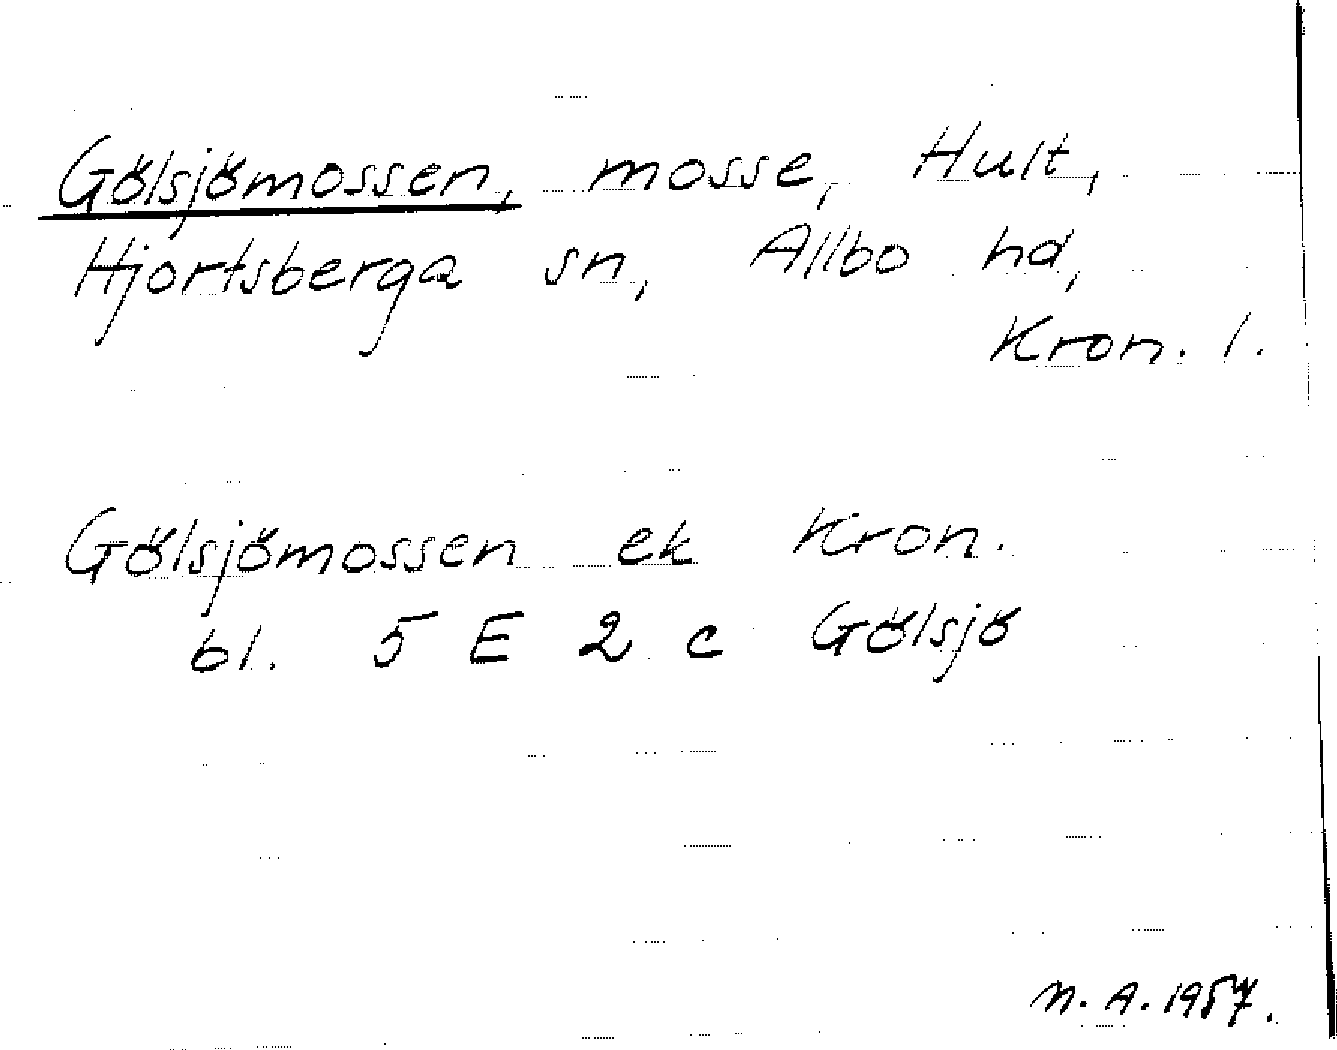 Gölsjömossen, mosse, Hult,
Hjortsberga sn, Allbo hd,
Kron. l.
Gölsjömossen ek Kron.
bl. 5 E 2 c Gölsjö
N. A. 1957.